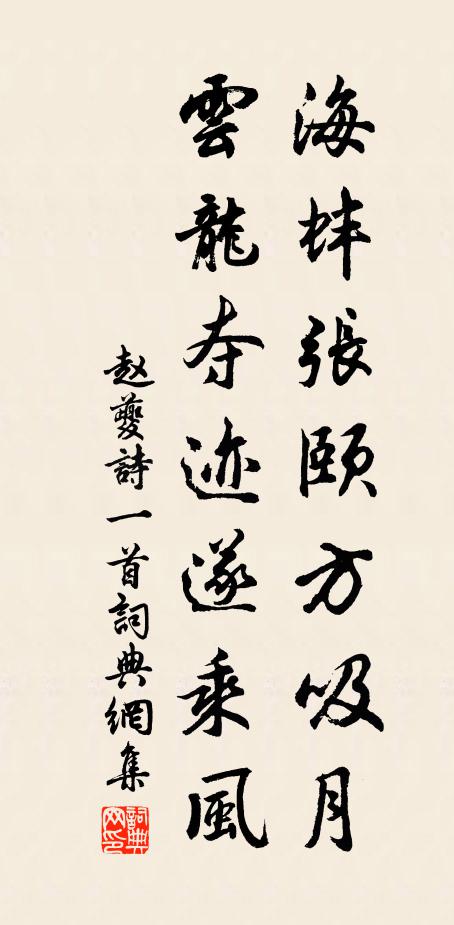 海蚌張頤方吸月
雲龍夺迹遂乘風
赵夔詩一首詞典網集
詞典网印